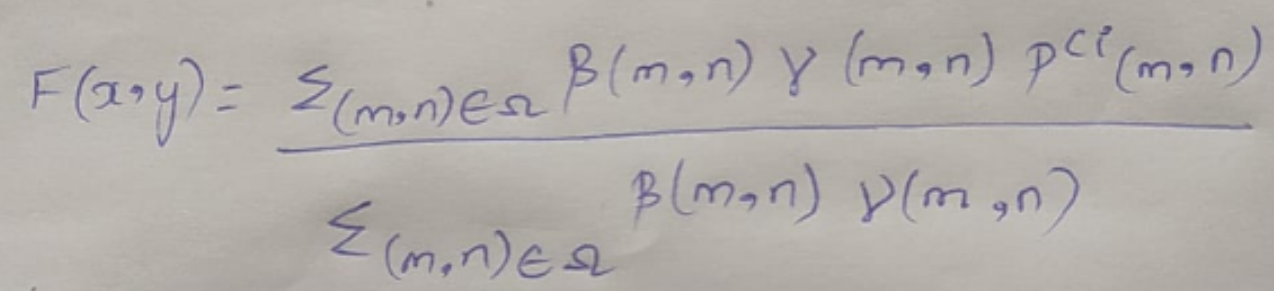 F(x,y) = Σ(m,n)∈Ω β(m,n) γ(m,n) p^{ci}(m,n)
Σ(m,n)∈Ω β(m,n) γ(m,n)